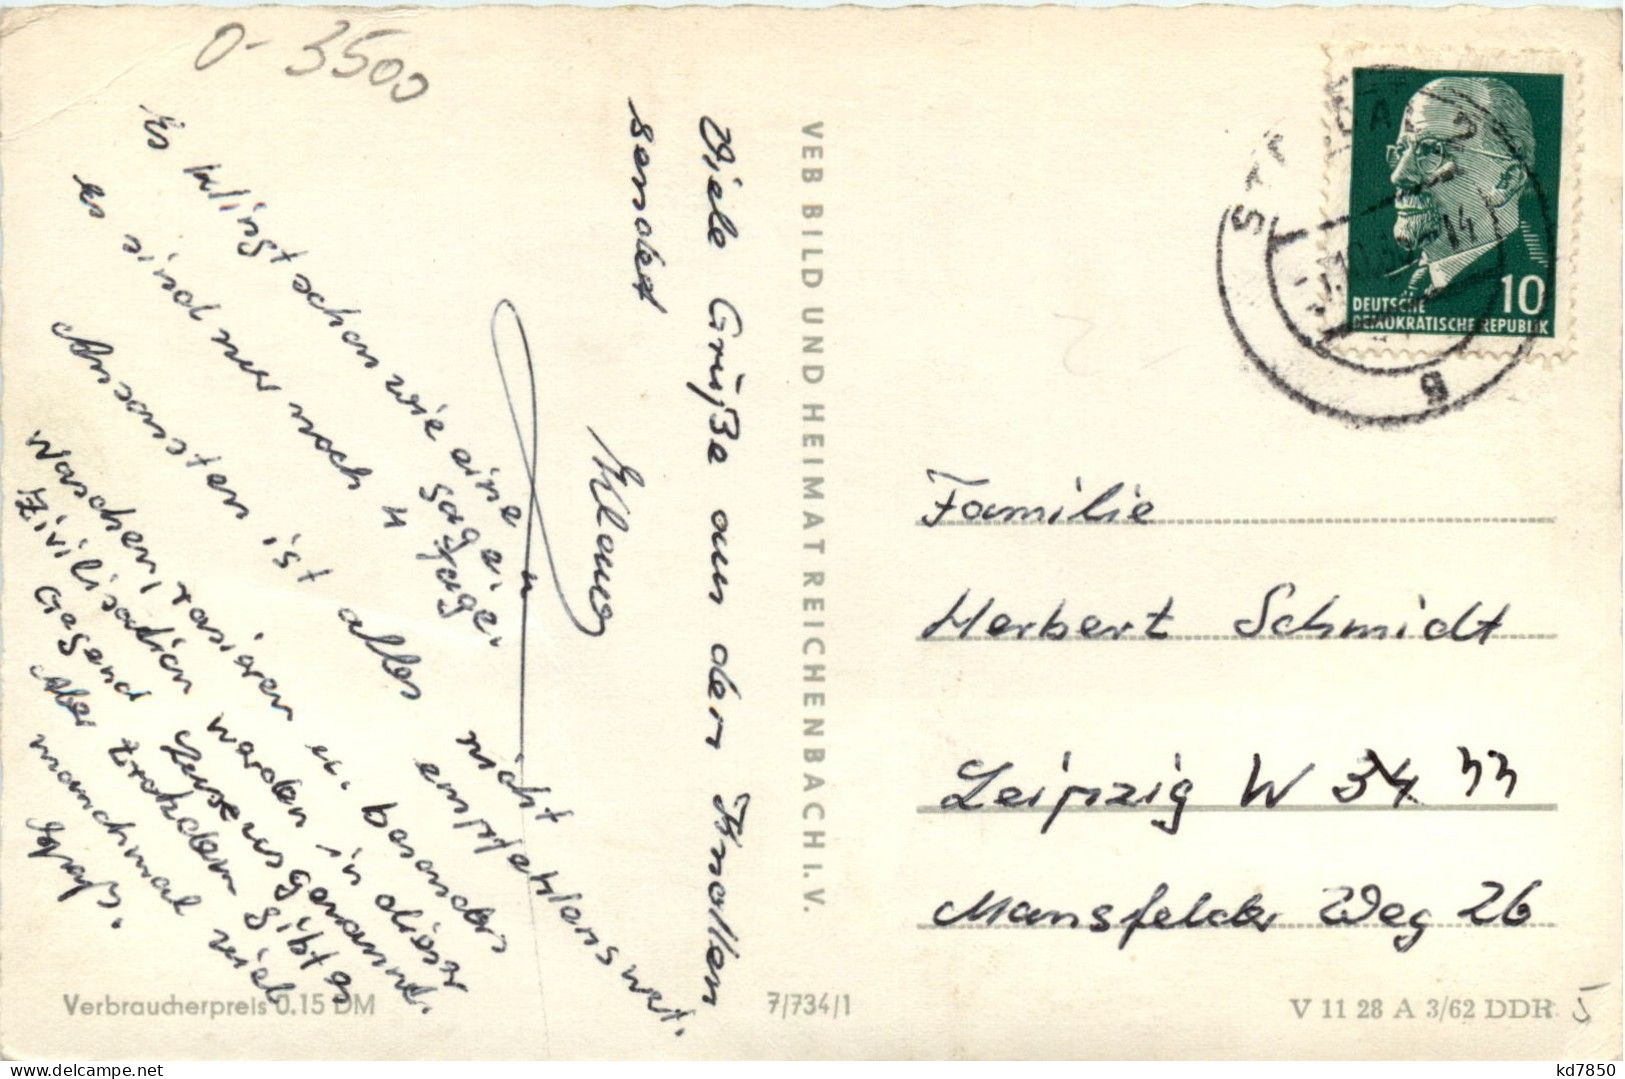 0-3500
Viele Grüße aus der Knollen
sendet
Klaus
Es klingt schon wie eine
Sage.
es sind nur noch 4 Tage.
Ansonsten ist alles nicht empfehlenswert.
Waschen, rasieren u. besonders
Zivilisation werden in dieser
Gegend genannt.
Aber trotzdem gibt es
manchmal viel
Spaß.
VEB BILD UND HEIMAT REICHENBACH I. V.
DEUTSCHE
DEMOKRATISCHE REPUBLIK
10
Familie
Herbert Schmidt
Leipzig W 34 33
Mansfelder Weg 26
Verbraucherpreis 0.15 DM
7/734/1
V 11 28 A 3/62 DDR
5
www.delcampe.net
kd7850